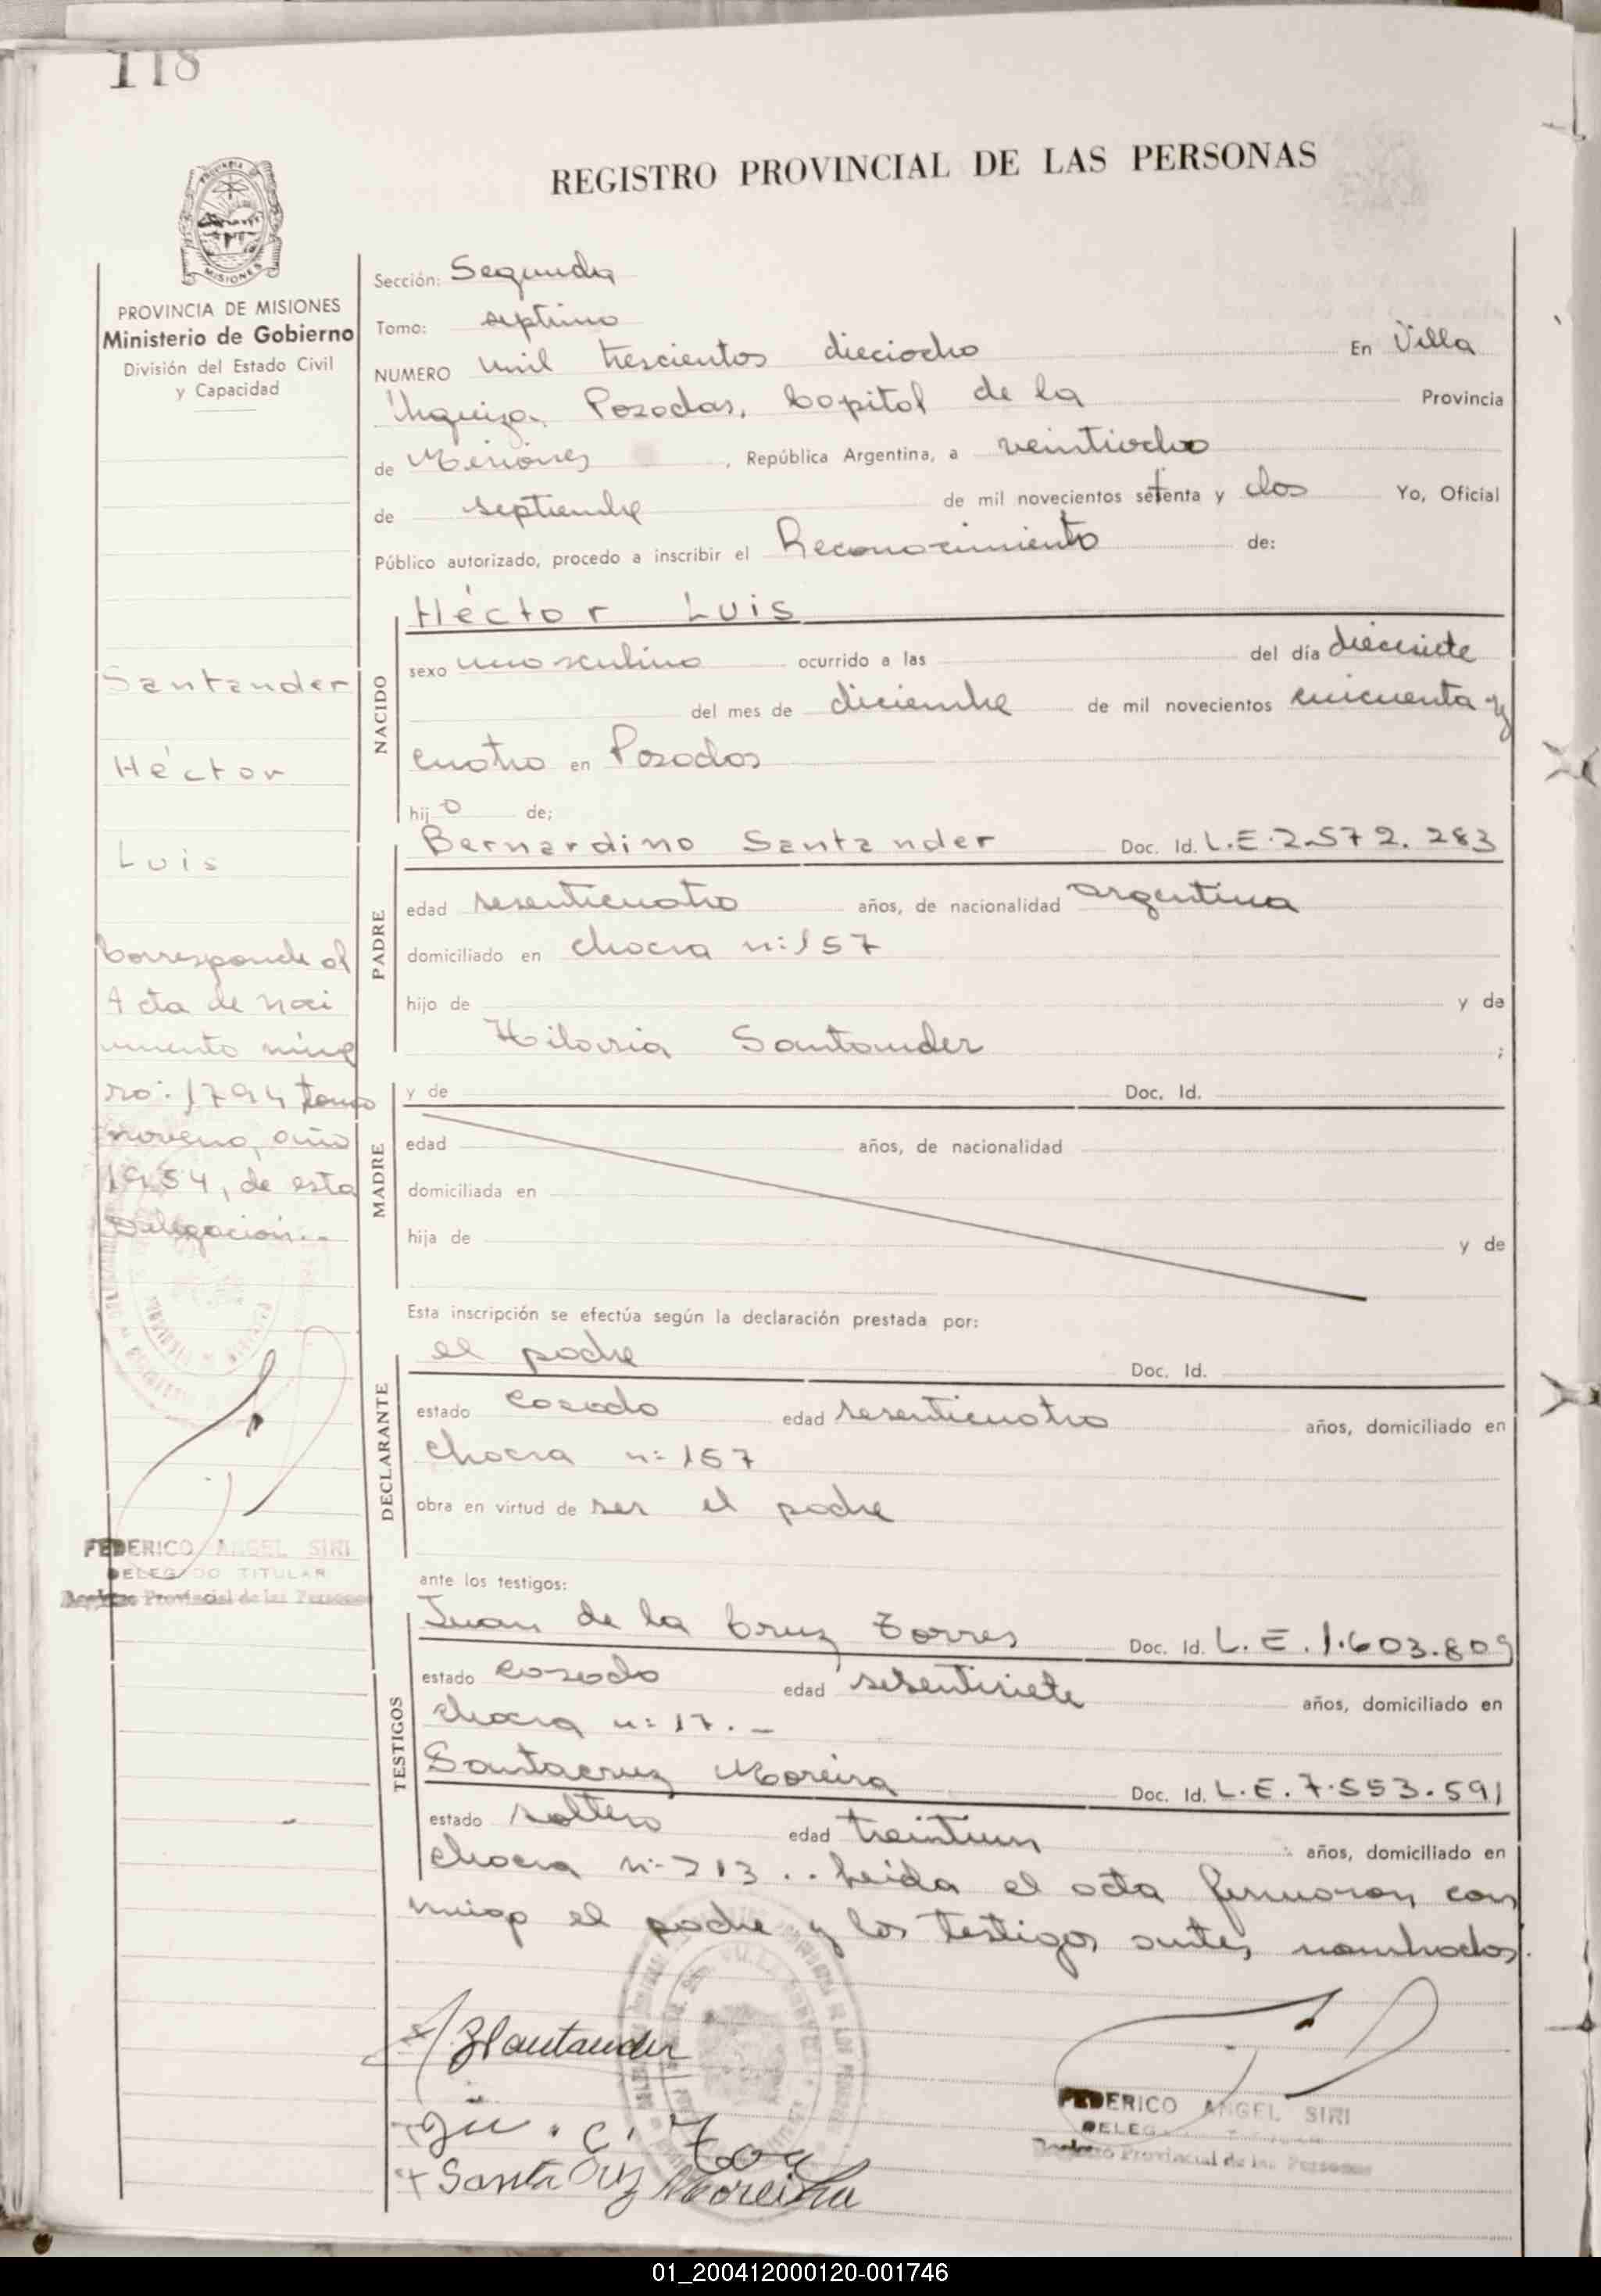 118
REGISTRO PROVINCIAL DE LAS PERSONAS
MISIONES
PROVINCIA DE MISIONES
Ministerio de Gobierno
División del Estado Civil
y Capacidad
Santander
Héctor
Luis
Corresponde al
Acta de naci
miento núme
ro: 1794 tomo
noveno, año
1954, de esta
Delegación.-
FEDERICO ANGEL SIRI
DELEGADO TITULAR
Registro Provincial de las Personas
Sección: Segunda
Tomo: septimo
NUMERO mil trescientos dieciocho En Villa
Urquiza, Posadas, Capital de la Provincia
de Misiones, República Argentina, a veintiocho
de septiembre de mil novecientos setenta y dos Yo, Oficial
Público autorizado, procedo a inscribir el Reconocimiento de:
NACIDO
Héctor Luis
sexo masculino ocurrido a las del día diecisiete
del mes de diciembre de mil novecientos cincuenta y
cuatro en Posadas
hijo de;
PADRE
Bernardino Santander Doc. Id. L.E. 2.572.283
edad sesenticuatro años, de nacionalidad argentina
domiciliado en chacra n: 157
hijo de y de
Hilaria Santander ;
MADRE
y de Doc. Id.
edad años, de nacionalidad
domiciliada en
hija de y de
Esta inscripción se efectúa según la declaración prestada por:
DECLARANTE
el padre Doc. Id.
estado casado edad sesenticuatro años, domiciliado en
chacra n: 157
obra en virtud de ser el padre
ante los testigos:
TESTIGOS
Juan de la Cruz Torres Doc. Id. L.E. 1.603.809
estado casado edad sesentisiete años, domiciliado en
chacra n: 17.-
Santacruz Moreira Doc. Id. L.E. 7.553.591
estado soltero edad treintiun años, domiciliado en
chacra n: 213.. Leida el acta firmaron con
migo el padre y los testigos antes nombrados.
BSantander
Ju. C. Tor
Santa Cruz Moreira
FEDERICO ANGEL SIRI
Registro Provincial de las Personas
01_200412000120-001746